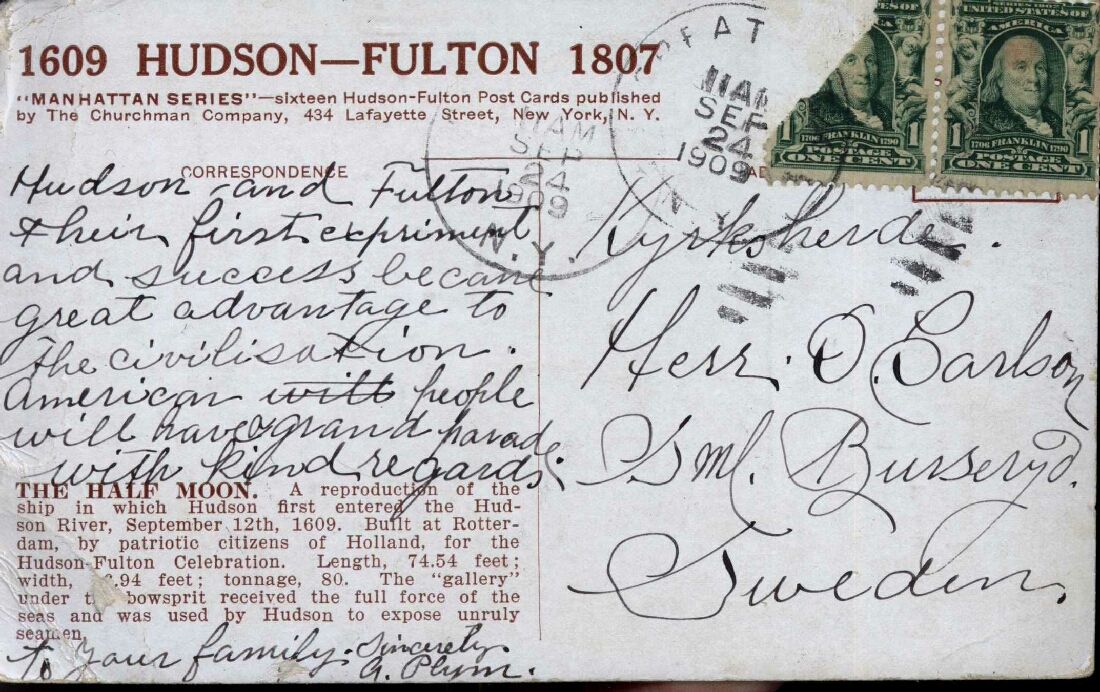 1609 HUDSON—FULTON 1807
"MANHATTAN SERIES"—sixteen Hudson-Fulton Post Cards published
by The Churchman Company, 434 Lafayette Street, New York, N. Y.
CORRESPONDENCE
Hudson and Fultons
their first expriment
and success became
great advantage to
the civilisation.
American will people
will have a grand parade
with kind regards.
THE HALF MOON. A reproduction of the
ship in which Hudson first entered the Hud-
son River, September 12th, 1609. Built at Rotter-
dam, by patriotic citizens of Holland, for the
Hudson-Fulton Celebration. Length, 74.54 feet;
width, .94 feet; tonnage, 80. The "gallery"
under bowsprit received the full force of the
seas and was used by Hudson to expose unruly
seamen,
to your family. Sincerely.
A. Plym.
11AM
SEP
24
1909
N.Y.
11AM
SEP
24
1909
N.Y.
UNITED STATES OF
AMERICA
1706 FRANKLIN 1790
1 POSTAGE 1
ONE CENT
1706 FRANKLIN 1790
1 POSTAGE 1
ONE CENT
Herr. O. Carlson
Sml. Burseryd.
Sweden.